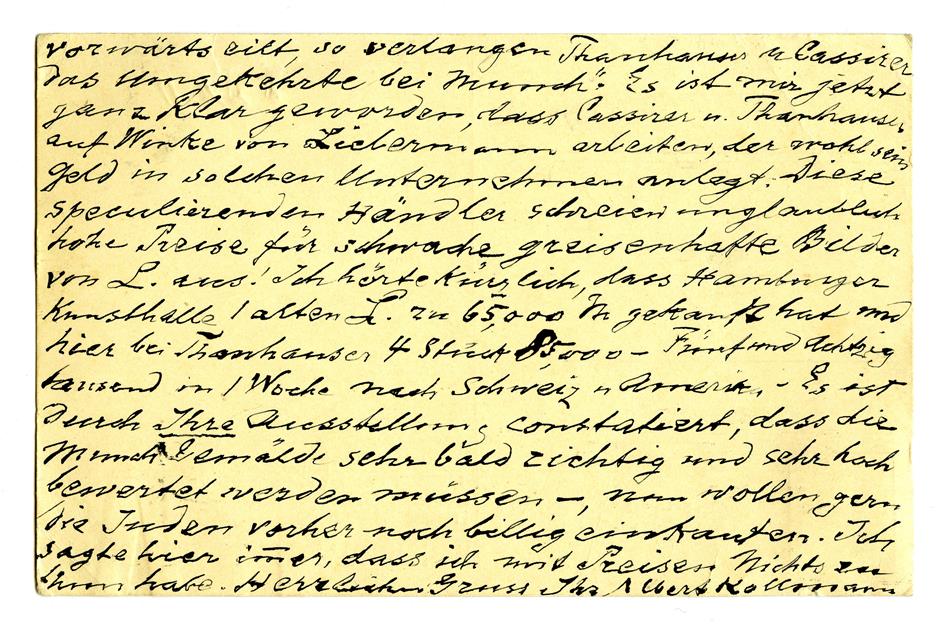 vorwärts eilt, so verlangen Thannhauser u Cassirer
das Umgekehrte bei Munch". Es ist mir jetzt
ganz Klar geworden, dass Cassirer u. Thanhauser
auf Winke von Liebermann arbeiten, der wohl sein
Geld in solchen Unternehmen anlegt. Diese
speculierenden Händler schreien unglaublich
hohe Preise für schwache greisenhafte Bilder
von L. aus! Ich hörte Kürzlich, dass Hamburger
Kunsthalle 1 alten L. zu 65,000 M gekauft hat und
hier bei Thanhauser 4 Stück 85,000 – Fünf und Achtzig
tausend in 1 Woche nach Schweiz u Amerika, – Es ist
Durch Ihre Ausstellung constatiert, dass die
Munch Gemälde sehr bald richtig und sehr hoch
bewertet werden müssen –, nun wollen gern
die Juden vorher noch billig einkaufen. Ich
sagte hier im̄er, dass ich mit Preisen Nichts zu
thun habe. Herzlichen Gruss Ihr Albert Kollmann